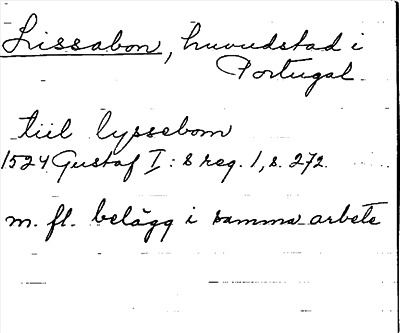 Lissabon, huvudstad i
Portugal.
tiil lyssebom
1524 Gustaf I:s reg. 1, s. 272.
m. fl. belägg i samma arbete